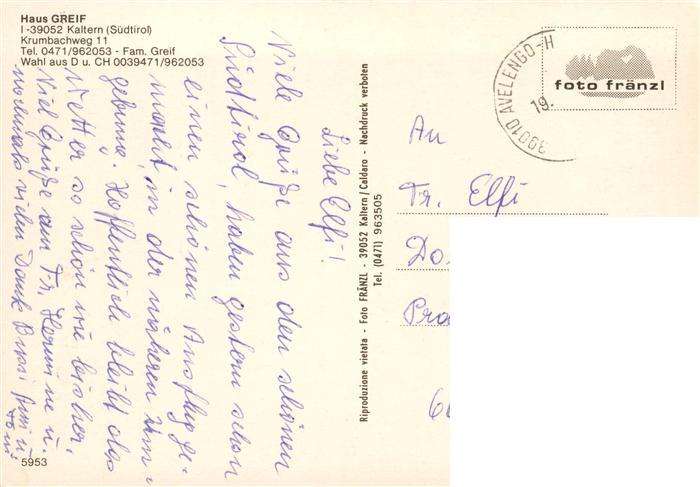 Haus GREIF
I-39052 Kaltern (Südtirol)
Krumbachweg 11
Tel. 0471/962053 - Fam. Greif
Wahl aus D u. CH 0039471/962053
Liebe Elfi!
Viele Grüße aus den schönen
Südtirol, haben gestern schon
einen schönen Ausflug ge-
macht in der näheren Um-
gebung. Hoffentlich bleibt das
Wetter so schön wie bisher,
Viel Grüße an Fr. Hermine u.
nochmals vielen Dank Bussi
5953
Riproduzione vietata - Foto FRÄNZL - 39052 Kaltern / Caldaro - Nachdruck verboten
Tel. (0471) 963505
39010 AVELENGO-H
19.
foto fränzl
An
Fr. Elfi
Do
Pra
6